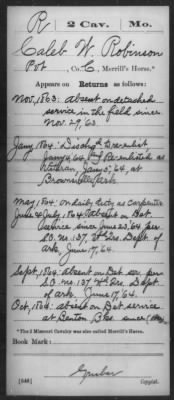 R 2 Cav. Mo.
Caleb W. Robinson
Pvt, Co. C, Merrill's Horse.*
Appears on Returns as follows:
Nov, 1863: absent on detached
service in the field since
Nov. 29, '63.
Jany 1864: Disch'g'd
Jany 4, '64 Re-enlisted as
Veteran, Jany 5, '64, at
Brownsville Ark
May, 1864: On daily duty as Carpenter
June & July, 1864: Absent on Det.
Service since June 23, 64 per
S.O. no. 137, Hd. Qrs. Dept. of
Ark, June 17, '64
Sept, 1864: absent on Det. ser. per
S.O. no. 137 Hd. Qrs. Dept.
of Ark. June 17, '64.
Oct, 1864: absent on Det. service
at Benton Bks. since
*The 2 Missouri Cavalry was also called Merrill's Horse.
Book Mark:
(546) Copyist.